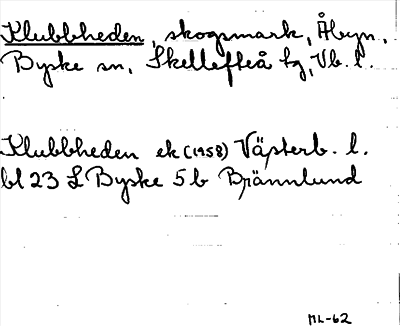 Klubbheden, skogsmark, Åbyn,
Byske sn, Skellefteå tg, Vb. l.
Klubbheden ek (1958) Västerb. l.
bl 23 L Byske 5 b Brännlund
ML-62